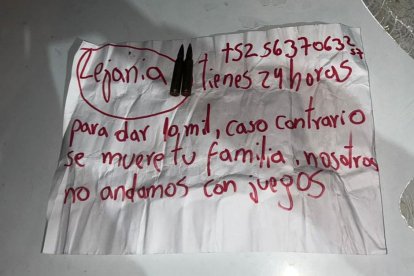 +52 56370632
57
Lejania tienes 24 horas
para dar 10 mil, caso contrario
se muere tu familia, nosotros
no andamos con juegos